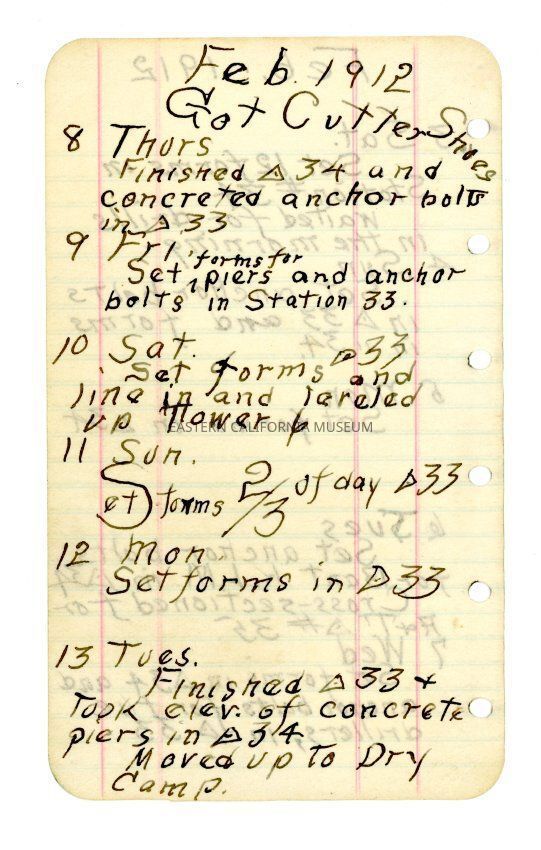 Feb. 1912
Got Cutter Shoes
8 Thurs
Finished △ 34 and
concreted anchor bolts
in △ 33
9 Fri
forms for
Set piers and anchor
bolts in Station 33.
10 Sat.
Set forms △ 33 and
line in and leveled
up tower
EASTERN CALIFORNIA MUSEUM
11 Sun.
Set forms 2/3 of day △ 33
12 Mon
Set forms in △ 33
13 Tues.
Finished △ 33 +
Took elev. of concrete
piers in △ 34
Moved up to Dry
Camp.